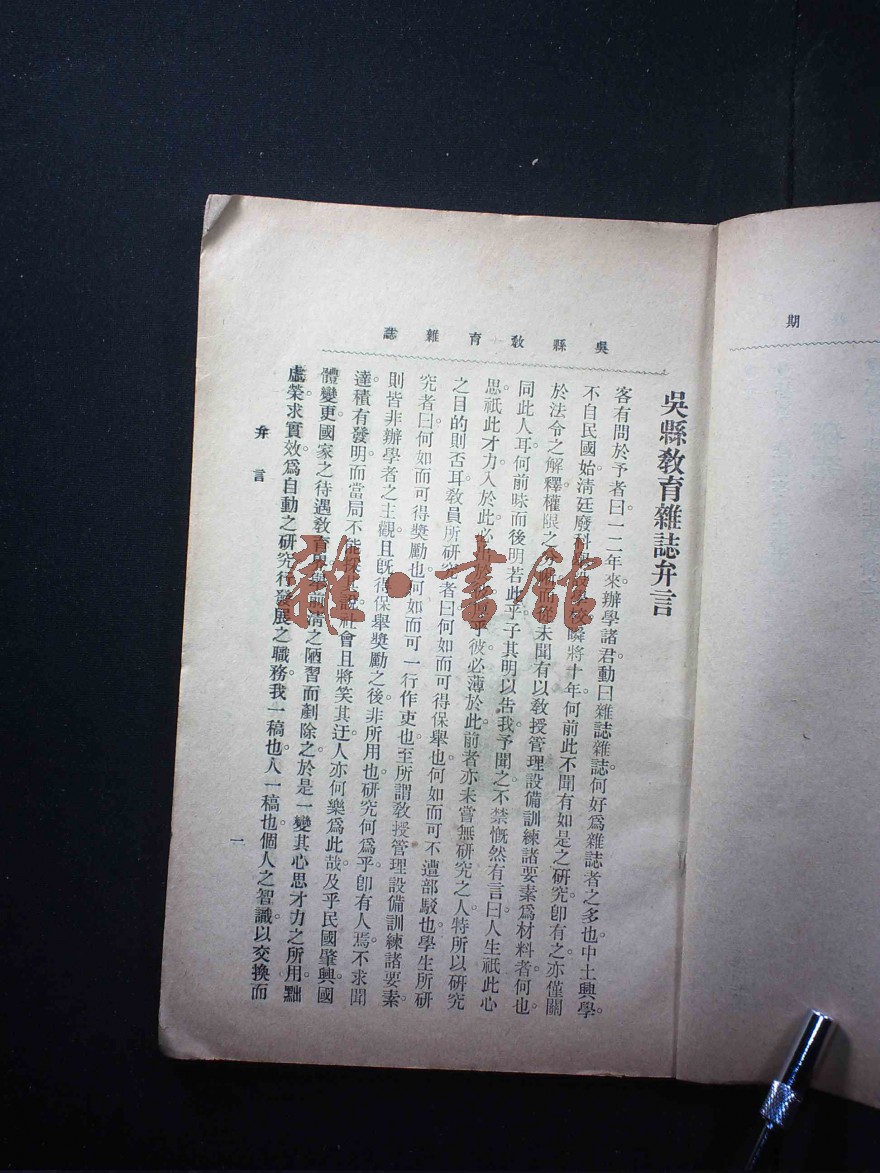 期
吳縣教育雜誌
吳縣教育雜誌弁言
客有問於予者。曰一二年來辦學諸君動曰雜誌雜誌。何好爲雜誌者之多也。中土興學
不自民國始。淸廷廢科學校。瞬將十年。何前此不聞有如是之研究。卽有之。亦僅關
於法令之解釋。權限之未聞有以敎授管理設備訓練諸要素爲材料者。何也。
同此人耳。何前昧而後明若此乎。子其明以告我。予聞之。不禁慨然有言曰。人生祇此心
思。祇此才力。入於此必乎彼必薄於此。前者亦未嘗無硏究之人。特所以硏究
之目的則否耳。敎員所硏究者。曰何如而可得保舉也。何如而可不遭部駁也。學生所硏
究者。曰何如而可得奬勵也。何如而可一行作吏也。至所謂敎授管理設備訓練諸要素。
則皆非辦學者之主觀。且旣得保舉奬勵之後。非所用也。硏究何爲乎。卽有人焉。不求聞
達。積有發明。而當局不能社會且將笑其迂。人亦何樂爲此哉。及乎民國肇興。國
體變更。國家之待遇敎育前淸之陋習而剷除之。於是一變其心思才力之所用。黜
虛榮。求實效。爲自動之硏究。行發展之職務。我一稿也。人一稿也。個人之智識。以交換而
弁言
一
雜·書館